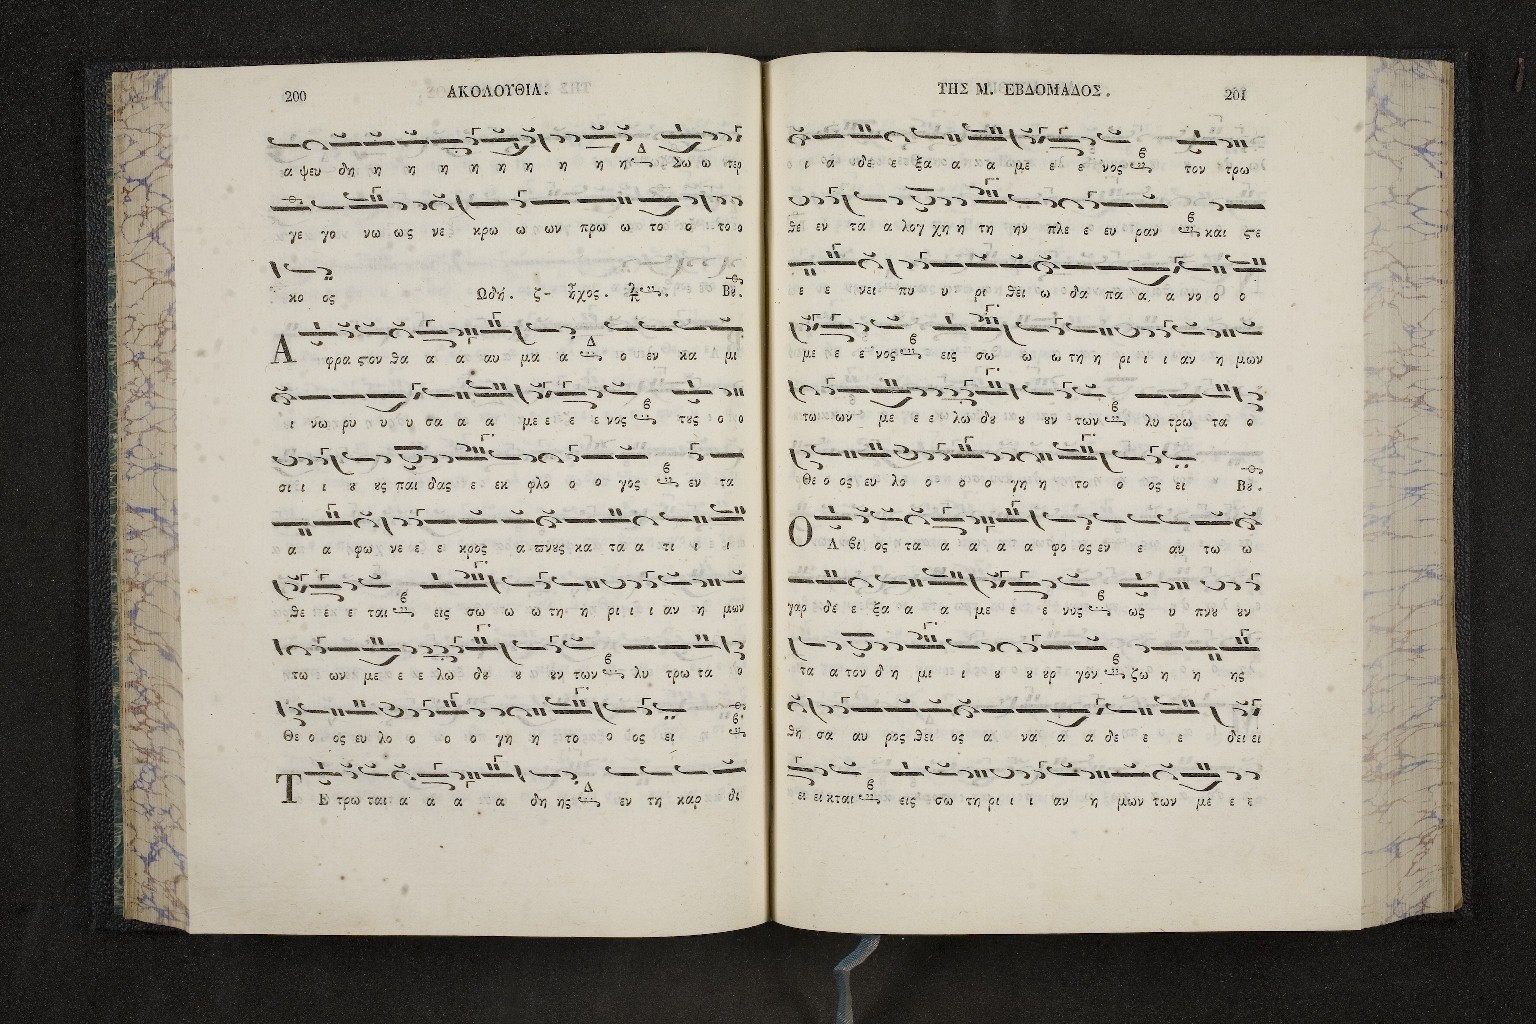 200 ΑΚΟΛΟΥΘΙΑ.
α ψευ δη η η η η η η η η Δ Σω ω τερ
γε γο νω ως νε κρω ω ων πρω ω το ο το ο
κο ος Ωδή. ζ– ἦχος. Βȣ.
Α φρα ϛον θα α α αυ μα α Δ ο εν κα μι
ι νω ρυ υ υ σα α α με ε ε ε νος ϐ τȣς ο ο
σι ι ι ȣ ȣς παι δας ε εκ φλο ο ο γος ϐ εν τα
α α φω νε ε ε κρος α πνȣς κα τα α τι ι ι
θε ε ε ται ϐ εις σω ω ω τη η ρι ι ι αν η μων
τω ων με ε ε λω δȣ ȣ ȣν των ϐ λυ τρω τα ο
Θε ο ος ευ λο ο ο ο γη η το ο ος ει ϐ
Τ Ε τρω ται α α α α δη ης Δ εν τη καρ δι
ΤΗΣ Μ. ΕΒΔΟΜΑΔΟΣ. 201
ι ά δε ε ξα α α με ε ε νος ϐ τον τρω
θε εν τα α λογ χη η τη ην πλε ε ευ ραν ϐ και ϛε
ε ε νει πυ υ ρι θει ω δα πα α α νο ο ο
με ε ε νος ϐ εις σω ω ω τη η ρι ι ι αν η μων
τω ων με ε ε λω δȣ ȣ ȣν των ϐ λυ τρω τα ο
Θε ο ος ευ λο ο ο ο γη η το ο ος ει Βȣ.
Ο Λ βι ος τα α α α α φο ος εν ε αν τω ω
γαρ δε ε ξα α α με ε ε νος ϐ ως υ πνȣ ȣν
τα α τον δη μι ι ȣ ȣ ȣρ γον ϐ ζω η η ης
θη σα αυ ρος θει ος α να α α δε ε ε δει ει
ει ει κται ϐ εις σω τη ρι ι ι αν η μων των με ε ε